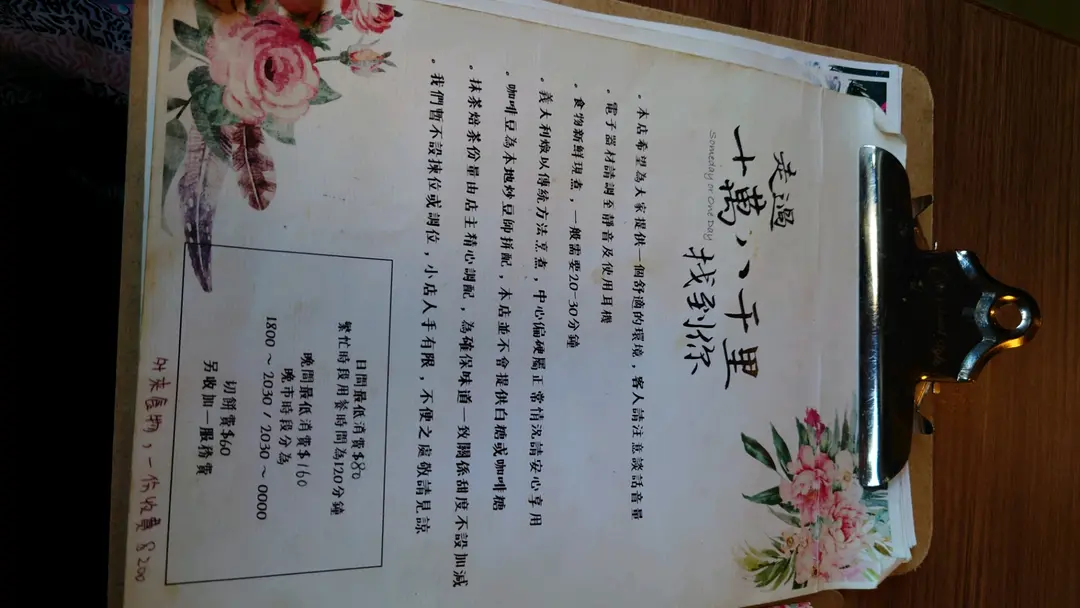 走過
十萬八千里
Someday or One Day
找到你
。本店希望為大家提供一個舒適的環境，客人請注意談話音量
。電子器材請調至靜音及使用耳機
。食物新鮮現煮，一般需要20-30分鐘
。義大利燉以傳統方法烹煮，中心偏硬屬正常情況請安心享用
。咖啡豆為本地炒豆師拼配，本店並不會提供白糖或咖啡糖
。抹茶焙茶份量由店主精心調配，為確保味道一致關係甜度不設加減
。我們暫不設揀位或調位，小店人手有限，不便之處敬請見諒
日間最低消費$80
繁忙時段用餐時間為120分鐘
晚間最低消費$160
晚市時段分為
1800～2030/2030～0000
切餅費$60
另收加一服務費
外來食物，一份收費$200